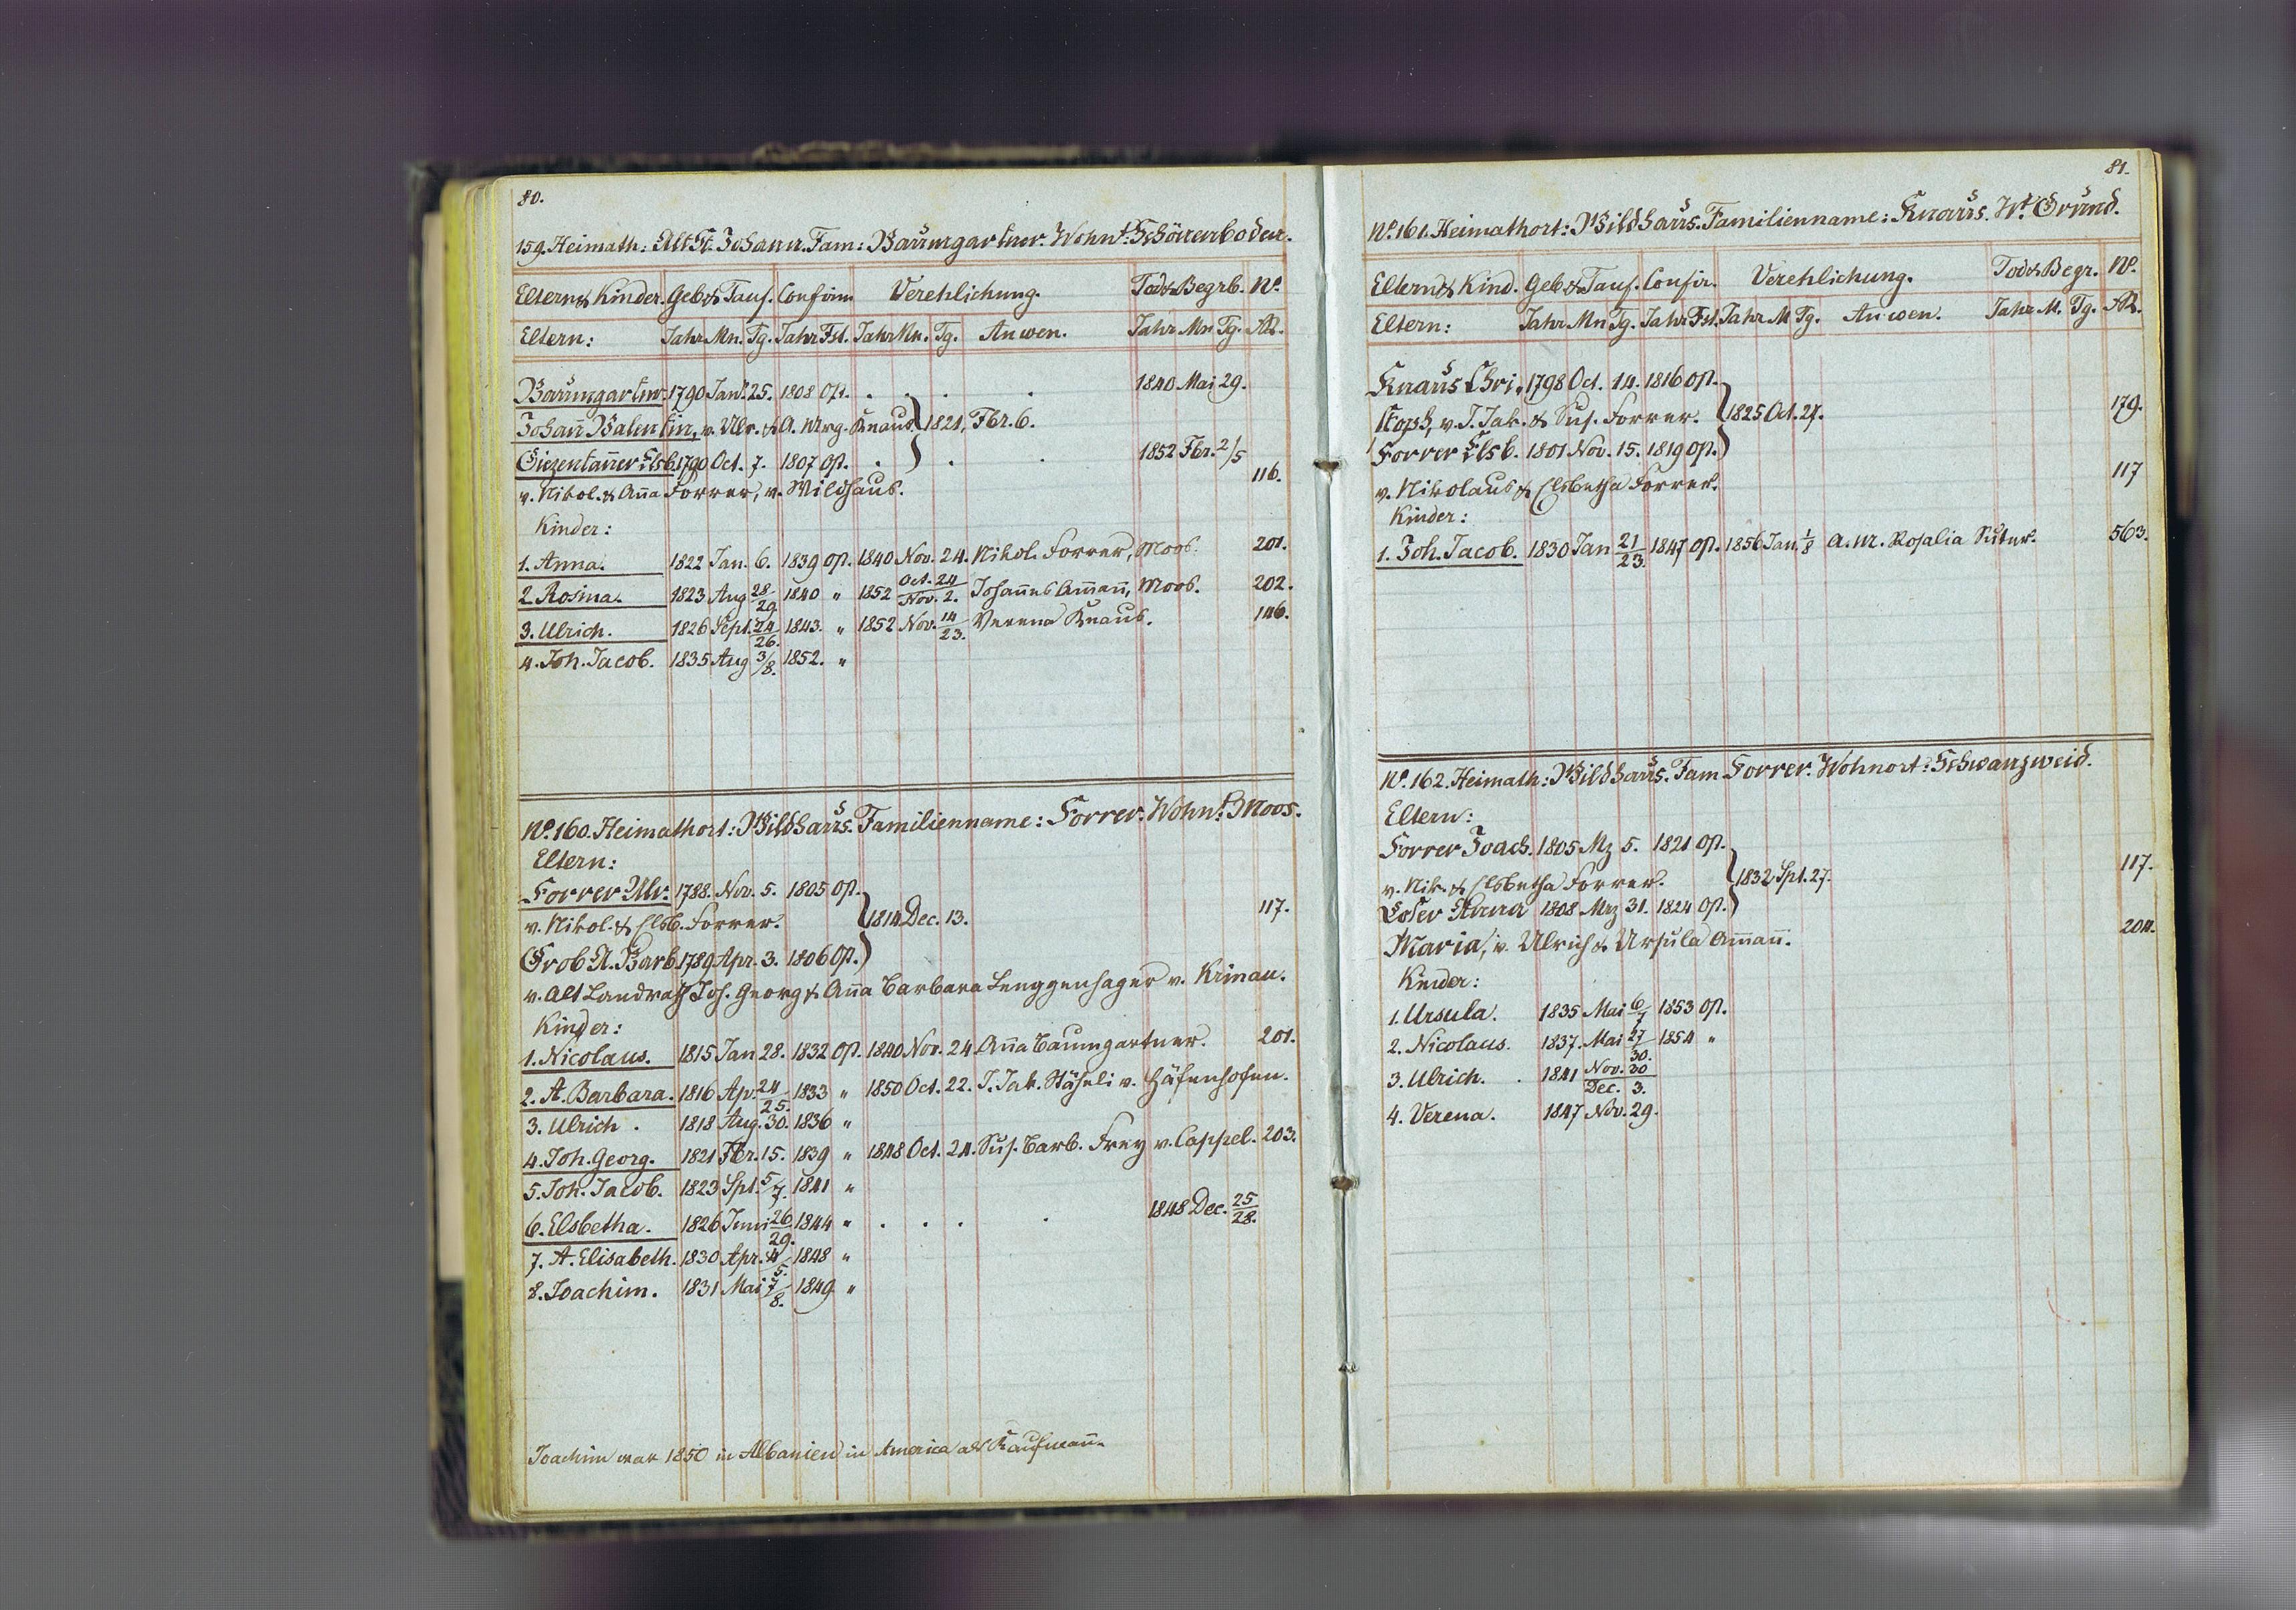 80.
159. Heimath: Alt St. Johann. Fam: Baumgartner. Wohnt: Schönenboden.
Eltern & Kinder. Geb & Tauf. Confirm. Verehlichung. Tod & Begrb. No.
Eltern: Jahr Mn. Tg. Jahr Fst. Jahr Mn. Tg. Anwen. Jahr Mn Tg. AR.
Baumgartner 1790 Jan. 25. 1808 Op. . . . 1840 Mai 29.
Johañ Valentin, v. Ulr. & A. Mrg. Knaus. } 1821, Fbr. 6.
Giezentañer Elsb. 1790 Oct. 7. 1807 Op. . . . 1852 Fbr. 2/5
v. Nikol. & Aña Forrer, v. Wildhaus. 116.
Kinder:
1. Anna. 1822 Jan. 6. 1839 Op. 1840 Nov. 24. Nikol. Forrer, Moos. 201.
2. Rosina. 1823 Aug 28/29 1840 " 1852 Oct. 24/Nov. 2. Johañes Am̄añ, Moos. 202.
3. Ulrich. 1826 Sept. 24/26. 1843. " 1852 Nov. 14/23. Verena Knaus. 146.
4. Joh. Jacob. 1835 Aug 3/8. 1852. "
No. 160. Heimathort: Wildhaus. Familienname: Forrer. Wohnt: Moos.
Eltern:
Forrer Ulr. 1788. Nov. 5. 1805 Op.
v. Nikol. & Elsb. Forrer. } 1814 Dec. 13. 117.
Grob A. Barb. 1789 Apr. 3. 1806 Op.
v. Alt Landrath Joh. Georg & Aña Barbara Lenggenhager v. Krinau.
Kinder:
1. Nicolaus. 1815 Jan 28. 1832 Op. 1840 Nov. 24. Aña Baumgartner. 201.
2. A. Barbara. 1816 Ap. 24/25. 1833 " 1850 Oct. 22. J. Jak. Stäheli v. Häfenhofen.
3. Ulrich . 1818 Aug. 30. 1836 "
4. Joh. Georg. 1821 Fbr. 15. 1839 " 1848 Oct. 24. Sus. Barb. Frey v. Cappel. 203.
5. Joh. Jacob. 1823 Spt. 5/7. 1841 "
6. Elsbetha. 1826 Juni 26/29. 1844 " . . . . 1848 Dec. 25/28.
7. A. Elisabeth. 1830 Apr. 4/5. 1848 "
8. Joachim. 1831 Mai 7/8. 1849 "
Joachim war 1850 in Albanien in America als Kaufmañ.
81.
No. 161. Heimathort: Wildhaus. Familienname: Knaus. Wt. Grund.
Eltern & Kind. Geb & Tauf. Confir. Verehlichung. Tod & Begr. No.
Eltern: Jahr Mn Tg. Jahr Fst. Jahr M Tg. Anwen. Jahr M. Tg. AR.
Knaus Chri, 1798 Oct. 14. 1816 Op.
stoph, v. J. Jak. & Sus. Forrer. } 1825 Oct. 27. 179.
Forrer Elsb. 1801 Nov. 15. 1819 Op.
v. Nikolaus & Elsbetha Forrer. 117
Kinder:
1. Joh. Jacob. 1830 Jan 21/23. 1847 Op. 1856 Jan. 1/8 A. M. Rosalia Suter. 563.
No. 162. Heimath: Wildhaus. Fam Forrer. Wohnort: Schwanzweid.
Eltern:
Forrer Joach. 1805 Mz 5. 1821 Op.
v. Nik. & Elsbetha Forrer. } 1832 Spt. 27. 117.
Loser Anna 1808 Mrz 31. 1824 Op.
Maria, v. Ulrich & Ursula Am̄añ. 204.
Kinder:
1. Ursula. 1835 Mai 6/7 1853 Op.
2. Nicolaus. 1837. Mai 27/30. 1854 "
3. Ulrich. . 1841 Nov. 30/Dec. 3.
4. Verena. 1847 Nov. 29.